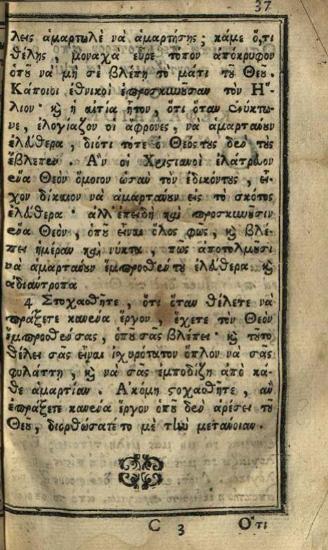 37
λεις ἁμαρτωλὲ νὰ ἁμαρτήσῃς; κάμε ὅ,τι
θέλῃς, μοναχὰ εὗρε τόπον ἀπόκρυφον
ὁποῦ νὰ μὴ σὲ βλέπῃ τὸ μάτι τοῦ Θεοῦ.
Κάποιοι ἐθνικοὶ ἐπροσκυνοῦσαν τὸν Ἥ-
λιον· καὶ ἡ αἰτία ἦτον, ὅτι ὅταν ἐνύκτω-
νε, ἐλογίαζον οἱ ἄφρονες, νὰ ἁμαρτάνουν
ἐλεύθερα, διότι τότε ὁ Θεός τους δὲν τοὺς
ἔβλεπεν. Ἂν οἱ Χριστιανοὶ ἐλάτρευον
ἕνα Θεὸν ὅμοιον ὡσὰν τὸν ἐδικόντους, εἶ-
χον δίκαιον νὰ ἁμαρτάνουν εἰς τὸ σκότος
ἐλεύθερα· ἀλλ' ἐπειδὴ καὶ προσκυνοῦσιν
ἕνα Θεὸν, ὁποῦ εἶναι ὅλος φῶς, καὶ βλέ-
πει ἡμέραν καὶ νύκτα, πῶς ἀποτολμοῦσι
νὰ ἁμαρτάνουν ἔμπροσθέν του ἐλεύθερα καὶ
ἀδιάντροπα
4 Στοχασθῆτε, ὅτι ὅταν θέλετε νὰ
πράξετε κανένα ἔργον, ἔχετε τὸν Θεὸν
ἔμπροσθέν σας, ὁποῦ σας βλέπει· καὶ τοῦτο
θέλει σᾶς εἶναι ἰσχυρότατον ὅπλον νὰ σᾶς
φυλάττῃ, καὶ νὰ σᾶς ἐμποδίζῃ ἀπὸ κά-
θε ἁμαρτίαν. Ἀκόμη στοχασθῆτε, ἂν
ἐπράξετε κανένα ἔργον ὁποῦ δὲν ἀρέσει τοῦ
Θεοῦ, διορθώσατέ το μὲ τὴν μετάνοιαν.
C 3 Ὅτι